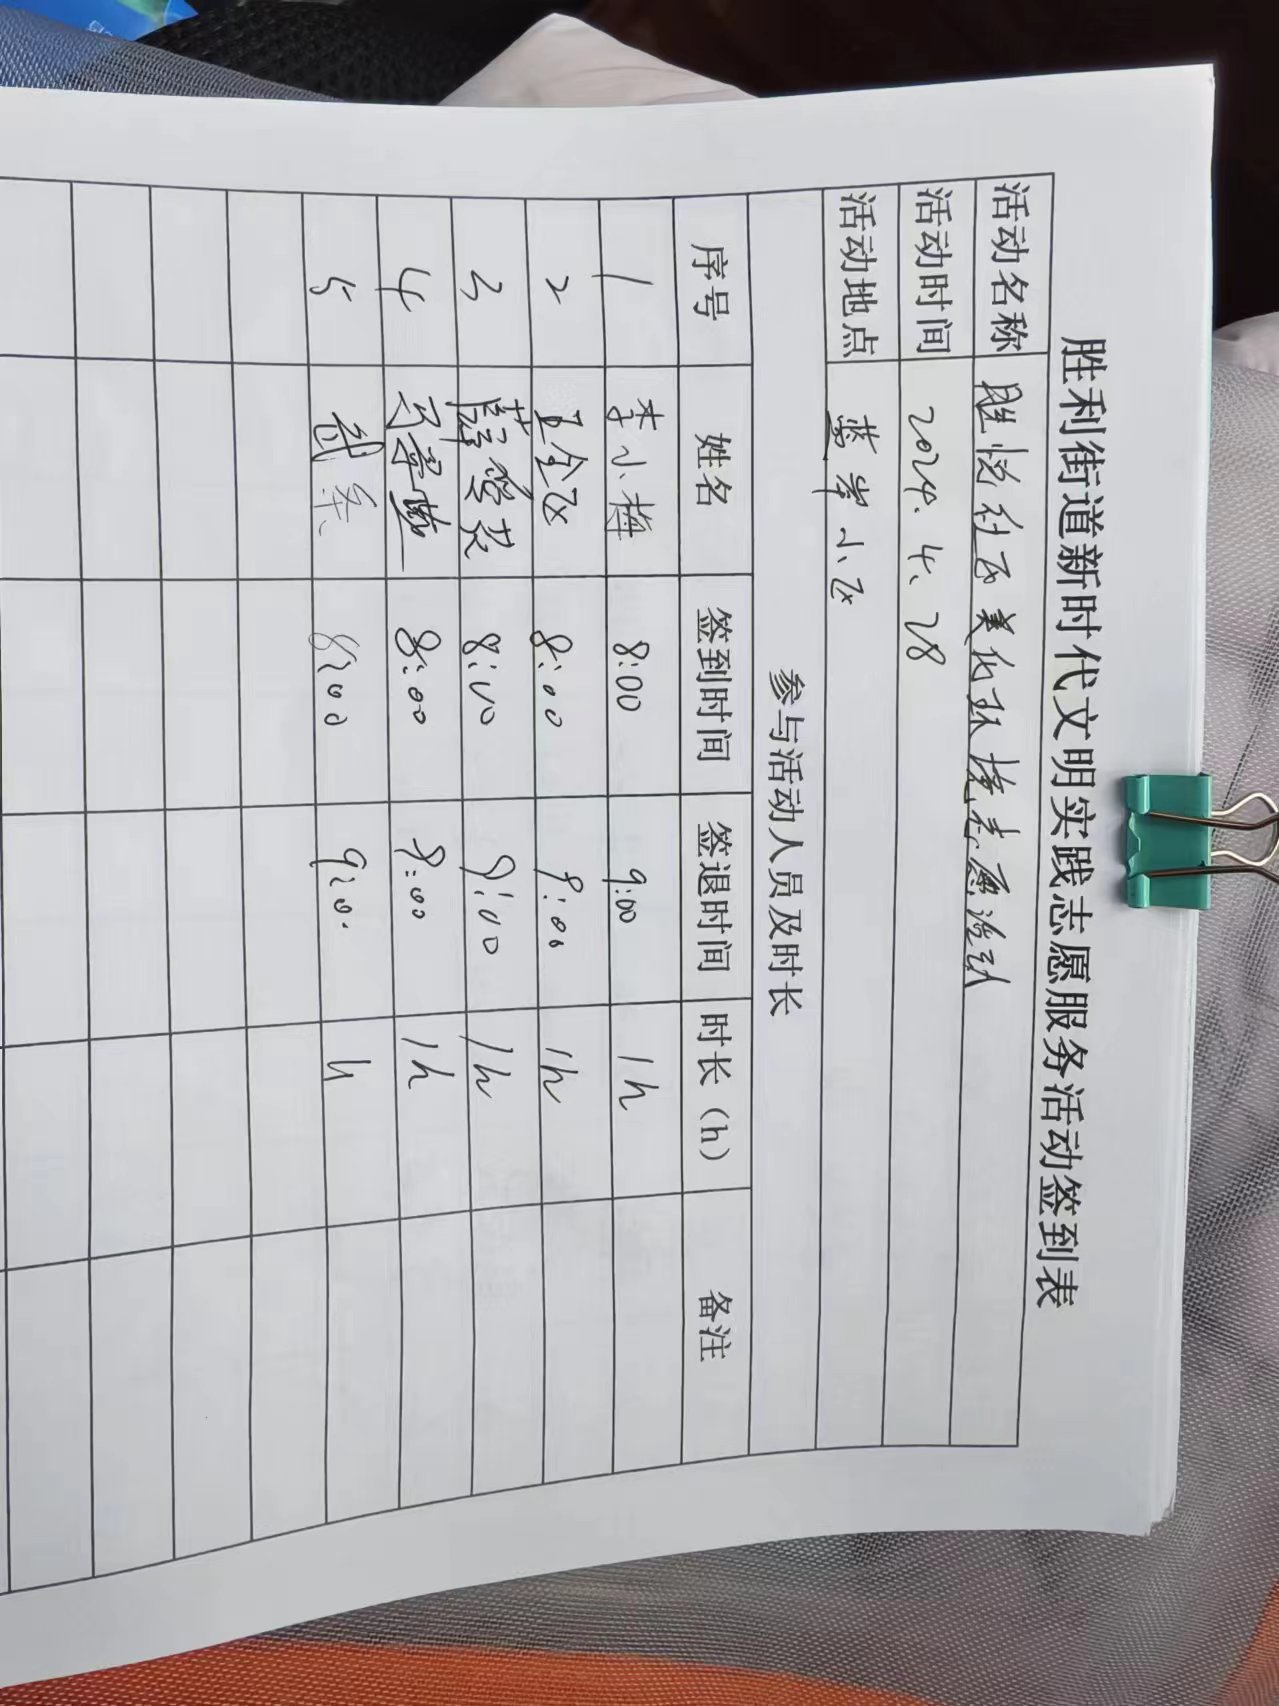 胜利街道新时代文明实践志愿服务活动签到表
活动名称 胜悦社区美化环境志愿活动
活动时间 2024.4.28
活动地点 蓝岸小区
参与活动人员及时长
序号 姓名 签到时间 签退时间 时长（h） 备注
1 李小梅 8:00 9:00 1h
2 王全亚 8:00 9:00 1h
3 薛 8:00 9:00 1h
4 8:00 9:00 1h
5 武 8:00 9:0